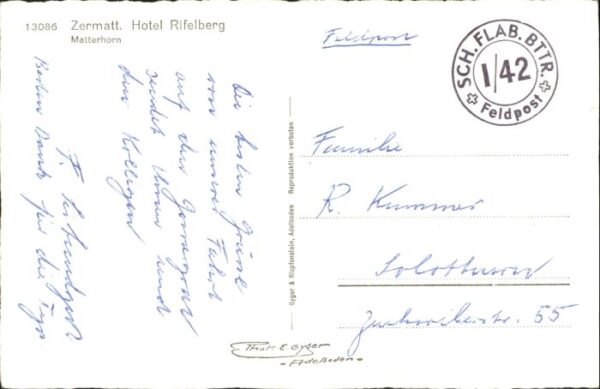 13086 Zermatt. Hotel Rifelberg
Matterhorn
Feldpost
SCH. FLAB. BTTR.
I/42
Feldpost
Die besten Grüsse
von unserer Fahrt
auf den Gornergrat
sendet Ihnen und
den Kollegen
F.
Besten Dank für die
Familie
R. Kummer
Solothurn
Zuchwilerstr. 55
Gyger & Klopfenstein, Adelboden Reproduktion verboten
Phot. E. Gyger
-Adelboden-